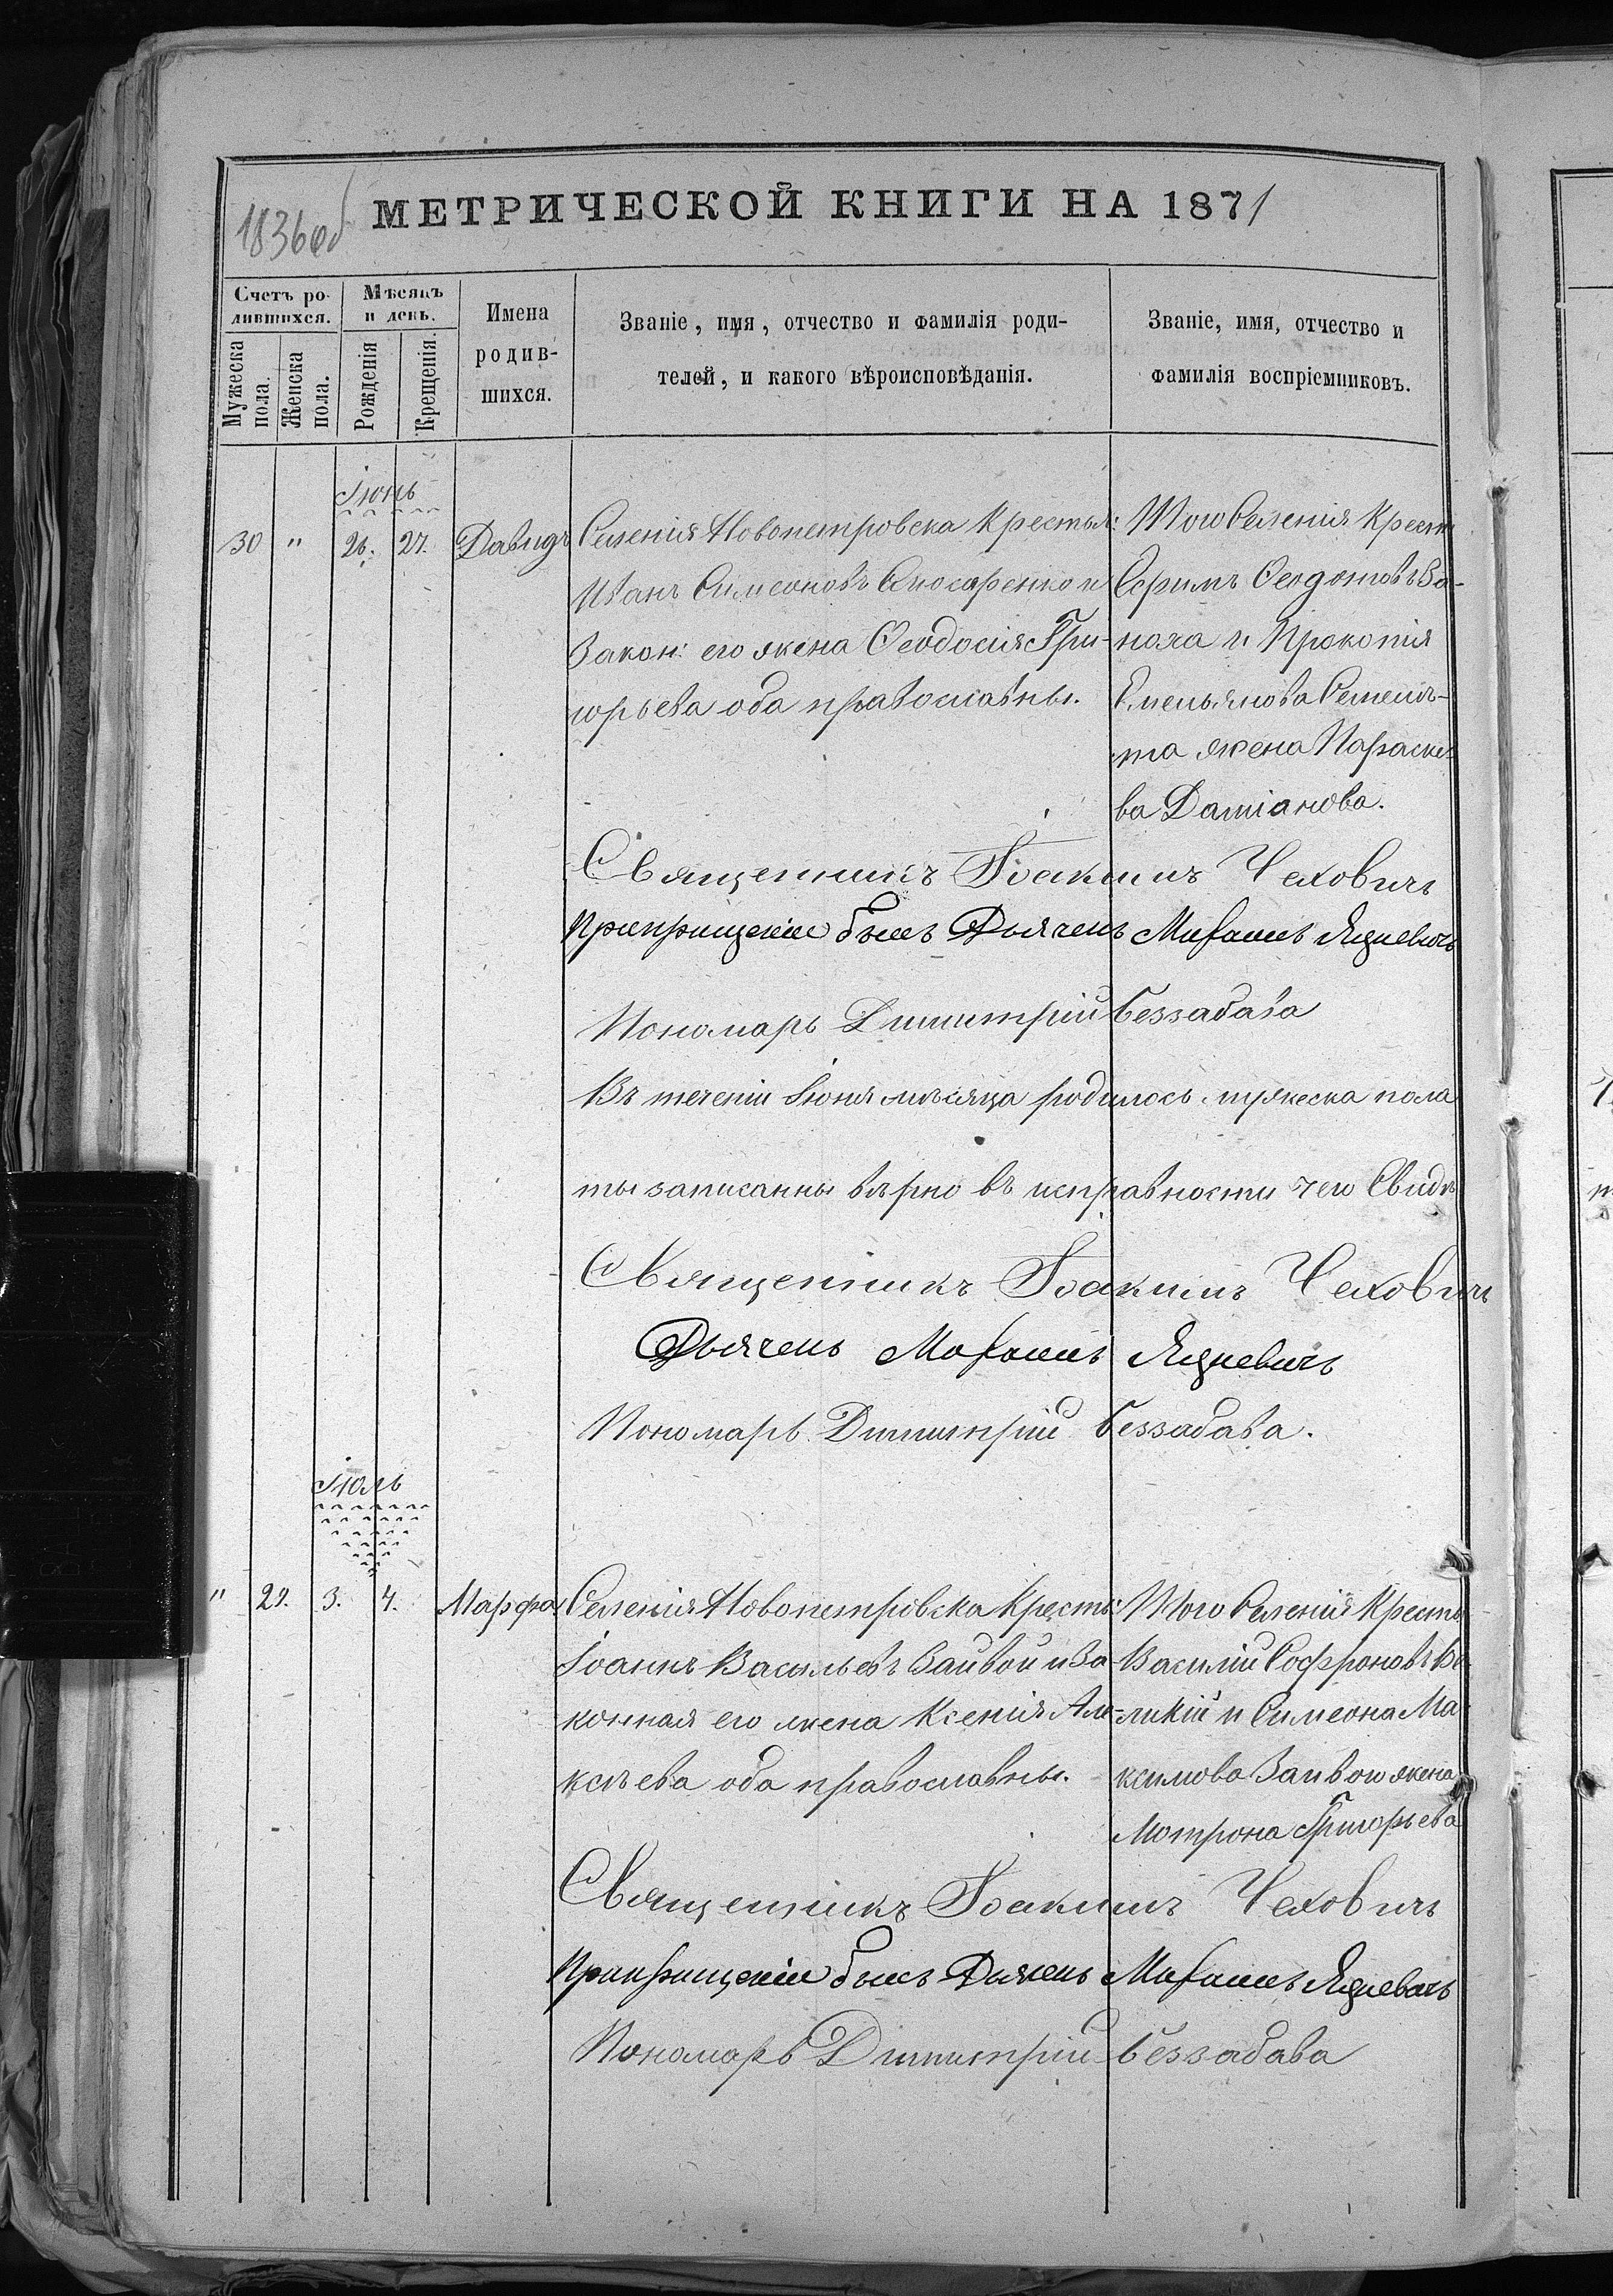 1836 об
МЕТРИЧЕСКОЙ КНИГИ НА 1871
Счетъ ро-
дившихся.
Мужеска
пола.
Женска
пола.
Мѣсяцъ
и день.
Рожденія
Крещенія.
Имена
родив-
шихся.
Званіе, имя, отчество и фамилія роди-
телей, и какого вѣроисповѣданія.
Званіе, имя, отчество и
фамилія воспріемниковъ.
Іюнь
30 " 26. 27. Давидъ
Селенія Новопетровска Крестья:
Иванъ Симеоновъ Слюсаренко и
Закон: его жена Ѳеодосія Гри-
горьева оба православны.
Того Селенія Крест
на и Прокопія
Емельянова
жена Параске-
ва Даміанова.
Священникъ Іоакимъ Чехович
При крещеніи былъ Дьячекъ Михаилъ Яцкевичъ
Пономарь Димитрій Беззабава
Въ теченіи Іюня мѣсяца родилось мужеска пола
ты записанны вѣрно въ исправности чего Свидѣ
Священникъ Іоакимъ Чехович
Дьячекъ Михаилъ Яцкевичъ
Пономарь Димитрій Беззабава.
Іюль
" 29. 3. 4. Марфа
Селенія Новопетровска Кресть:
Іоаннъ Васильевъ Зайвой и За-
конная его жена Ксенія Але-
ксѣева оба православны.
Того Селенія Кресть
Василій Софроновъ Ве-
ликій и Симеона Ма-
ксимова Зайвого жена
Мотрона Григорьева
Священникъ Іоакимъ Чехович
При крещеніи былъ Дьячекъ Михаилъ Яцкевичъ
Пономарь Димитрій Беззабава